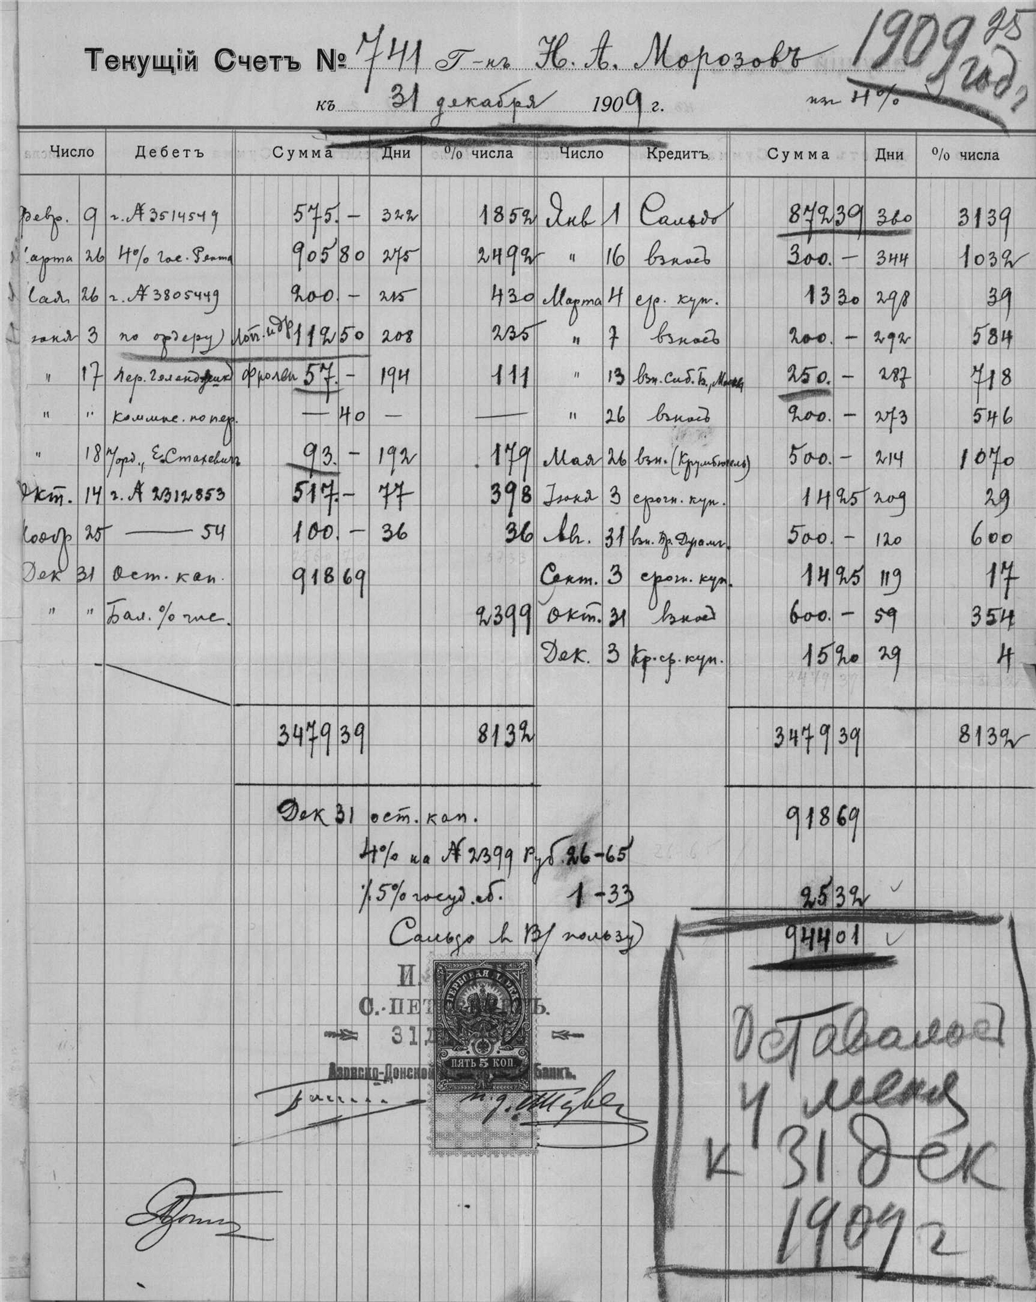 1909 25
годъ
Текущій Счетъ № 741 Г-нъ Н. А. Морозовъ
къ 31 декабря 1909 г. 4%
Число Дебетъ Сумма Дни % числа Число Кредитъ Сумма Дни % числа
Февр. 9 г. № 3514549 575.- 322 1852 Янв 1 Сальдо 872 39 360 3139
Марта 26 4% гос. Рента 905 80 275 2492 " 16 взносъ 300.- 344 1032
Мая 26 г. № 3805449 200.- 215 430 Марта 4 ср. куп. 13 30 298 39
Юня 3 по ордеру 112 50 208 235 " 7 взносъ 200.- 292 584
" 17 Пер. 57.- 194 111 " 13 взн. Сиб. Б., 250.- 287 718
" " коммис. по пер. - 40 - - " 26 взносъ 200.- 273 546
" 18 93.- 192 179 Мая 26 взн. 500.- 214 1070
Окт. 14 г. № 2312853 517.- 77 398 Іюня 3 срочн. куп. 14 25 209 29
Нояб 25 - 54 100.- 36 36 Авг. 31 взн. 500.- 120 600
Дек 31 Ост. кап. 918 69 Сент. 3 срочн. куп. 14 25 119 17
" " Бал. % чис. 2399 Окт. 31 взносъ 600.- 59 354
Дек. 3 Кр. ср. куп. 15 20 29 4
3479 39 8132 3479 39 8132
Дек 31 ост. кап. 918 69
4% на № 2399 Руб. 26-65
% 5% госуд. сб. 1-33 25 32
Сальдо в В/ пользу 944 01
С.-ПЕТЕРБУРГЪ.
31
ГЕРБОВАЯ МАРКА
ПЯТЬ 5 КОП.
Азовско-Донской Банкъ.
Оставалось
у меня
к 31 дек
1909 г